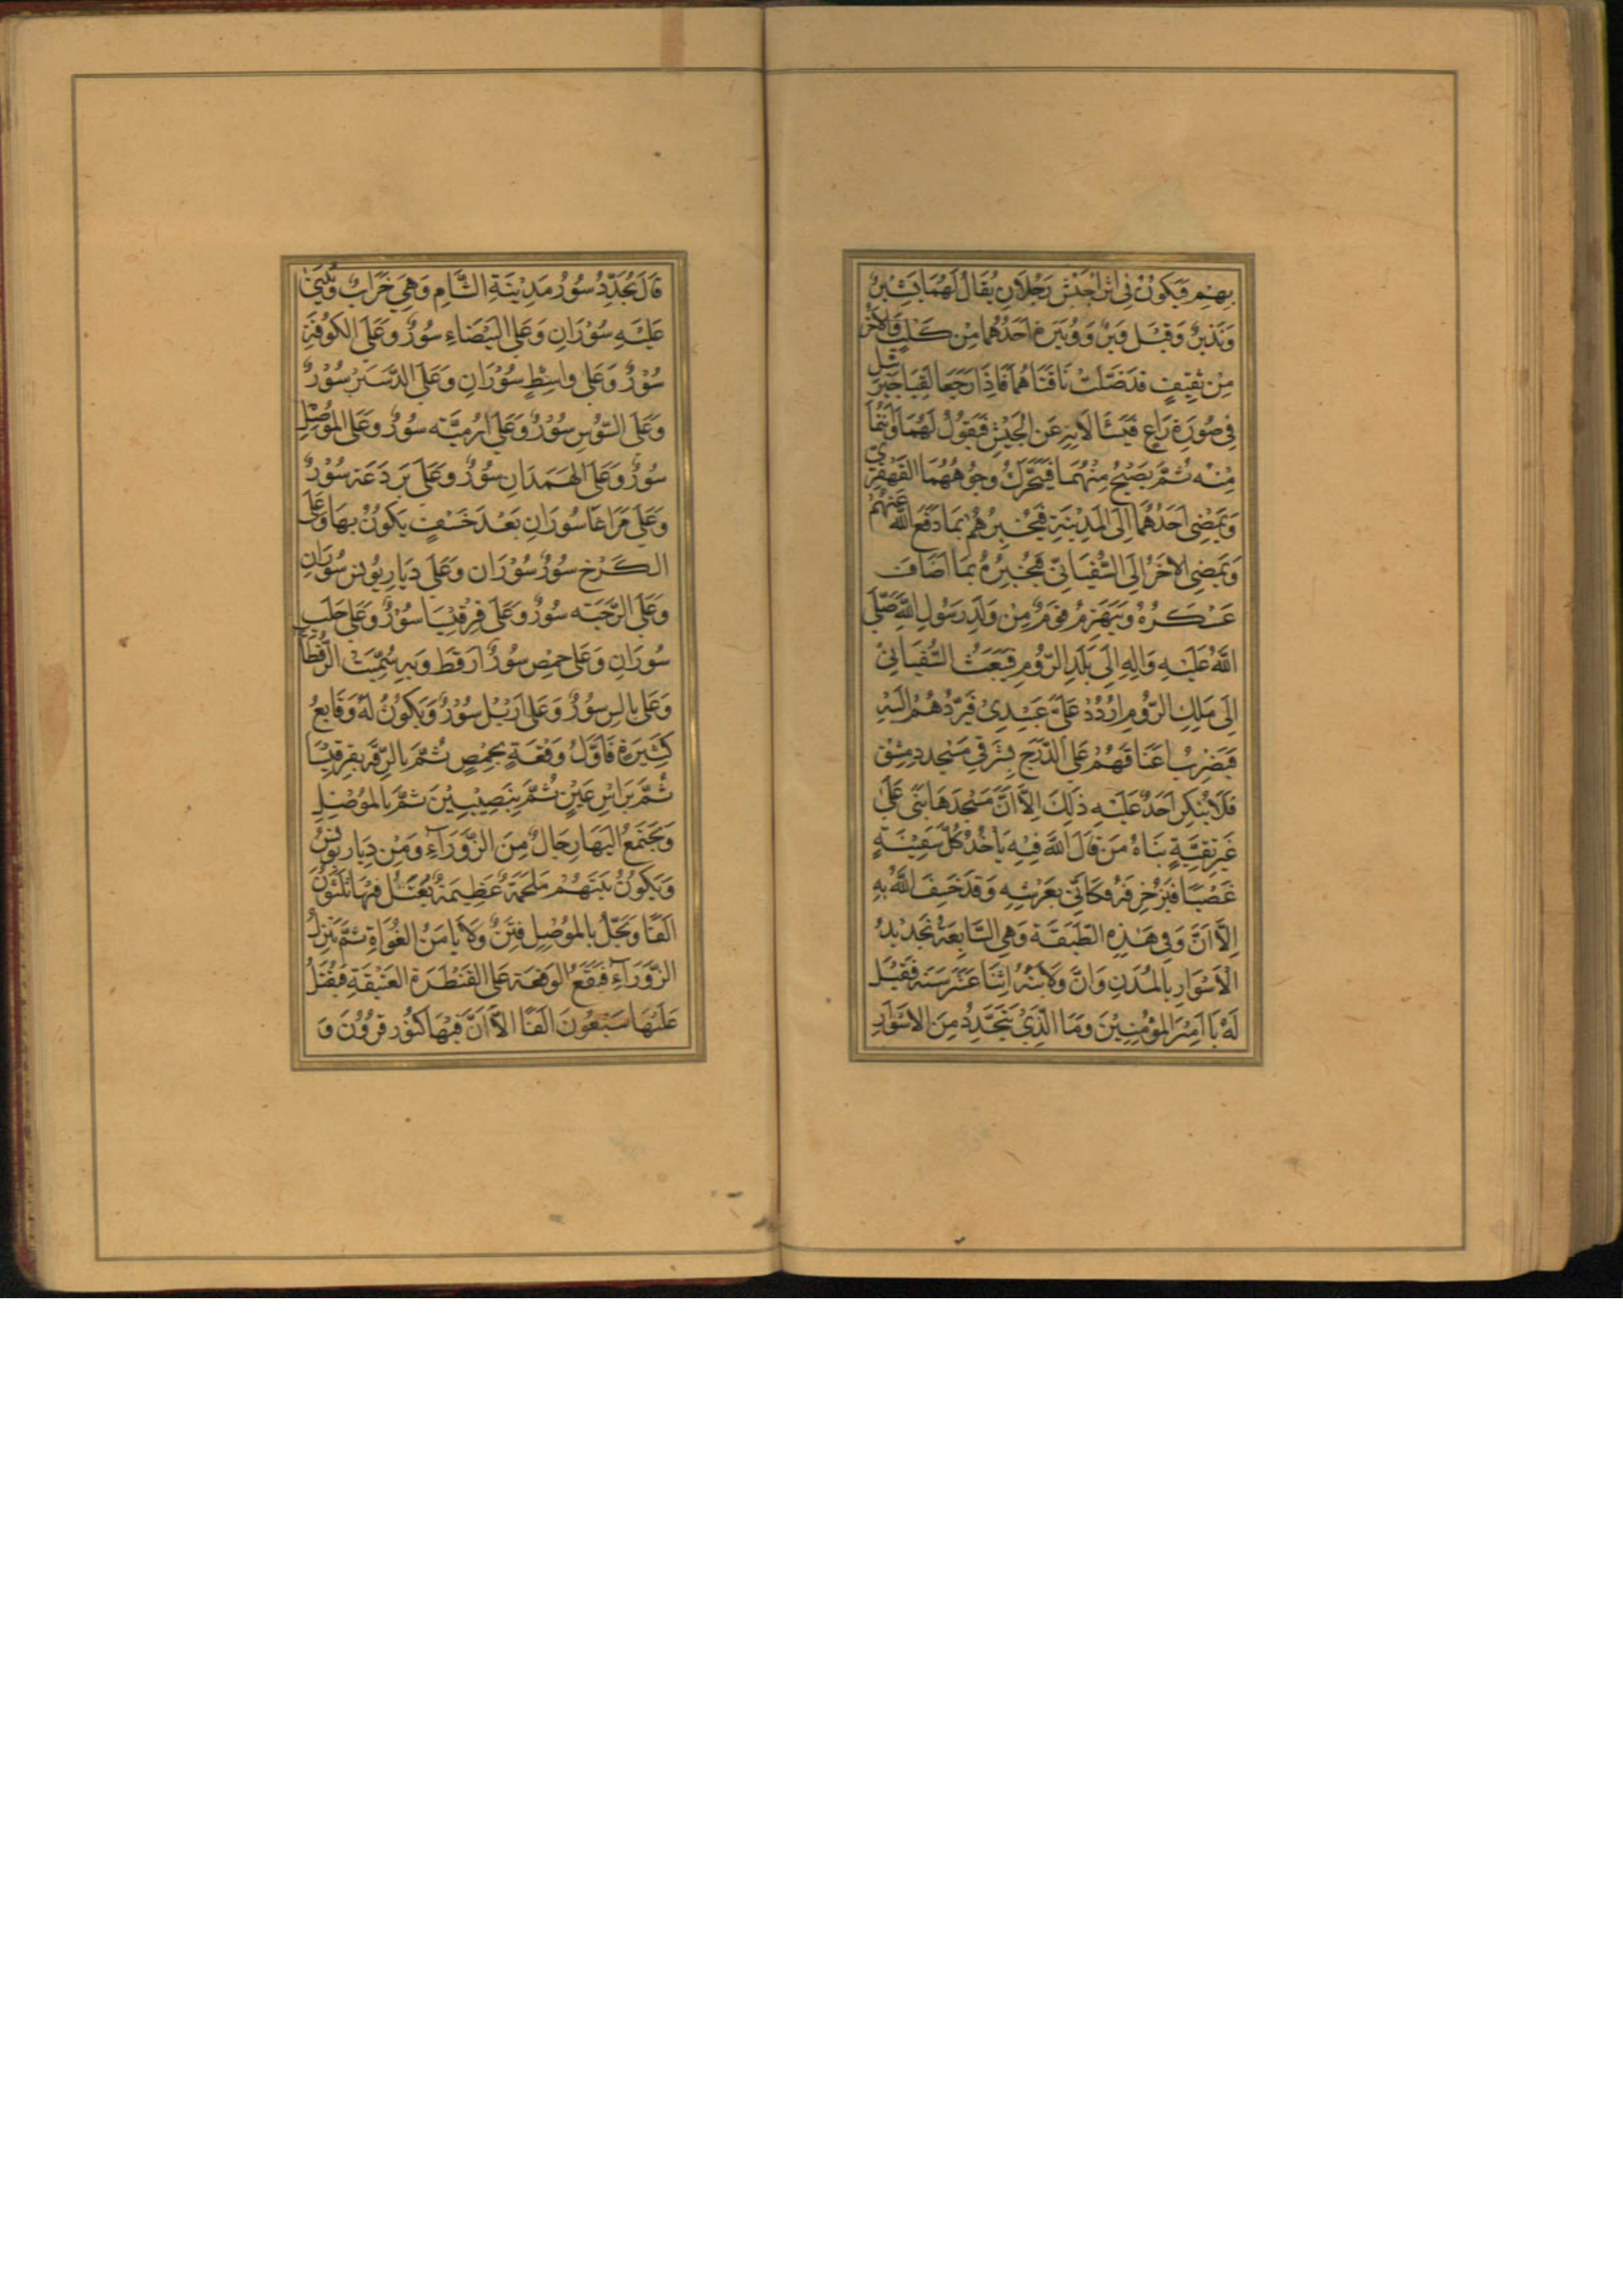 بِهِمْ وَيَكُونُ فِي اثَرِ الجَيْشِ رَجُلَانِ يُقَالُ لَهُمَا بَشِيْرٌ
وَنَذِيْرٌ وَقِيْلَ وَبَرٌ وَوُبَيْرَةٌ اَحَدُهُمَا مِنْ كَلْبٍ وَالاخَرُ
مِنْ ثَقِيْفٍ قَدْ ضَلَّتْ نَاقَتَاهُمَا فَاِذَا رَجَعَا لَقِيَا جَبْرَئِيلَ
فِي صُورَةِ رَاعٍ فَيَسْئَلَانِهِ عَنِ الْجَيْشِ فَيَقُولُ لَهُمَا وَانْتُمَا
مِنْهُ ثُمَّ يَصِيْحُ مِنْهُمَا فَيَتَحَرَّكُ وُجُوهُهُمَا القَهْقَرَى
وَيَمْضِي اَحَدُهُمَا اِلَى المَدِيْنَةِ فَيُخْبِرُهُمْ بِمَا دَفَعَ اللهُ عَنْهُمْ
وَيَمْضِي الاخَرُ اِلَى السُّفْيَانِيِّ فَيُخْبِرُهُ بِمَا اَصَابَ
عَسْكَرُهُ وَيَهْزِمُ قَوْمٌ مِنْ وَلَدِ رَسُولِ اللهِ صَلَّى
اللهُ عَلَيْهِ وَالِهِ اِلَى بَلَدِ الرُّومِ فَيَبْعَثُ السُّفْيَانِيُّ
اِلَى مَلِكِ الرُّومِ ارْدُدْ عَلَيَّ عَبِيْدِي فَيَرُدُّهُمْ اِلَيْهِ
فَيَضْرِبُ اَعْنَاقَهُمْ عَلَى الدَّرَجِ شَرْقِي مَسْجِدِ دِمِشْقَ
فَلَا يُنْكِرُ اَحَدٌ عَلَيْهِ ذَلِكَ اِلَّا اَنَّ مَسْجِدَهَا بُنِيَ عَلَى
غَيْرِ تَقِيَّةٍ بَنَاهُ مَنْ قَالَ اللهُ فِيْهِ يَاْخُذُ كُلَّ سَفِيْنَةٍ
غَصْبًا فَيُزَخْرِفُهُ فَكَاَنِّي بِعَرْشِهِ وَقَدْ خَسَفَ اللهُ بِهِ
اِلَّا اَنَّ وَفِي هَذِهِ الطَّبَقَةِ وَهِيَ السَّابِعَةُ تَجْدِيْدُ
الْاَسْوَارِ بِالمُدُنِ وَاَنَّ وَلَايَتَهُ اِثْنَا عَشَرَ سَنَةً فَقِيْلَ
لَهُ يَا اَمِيْرَ المُؤْمِنِيْنَ وَمَا الَّذِيْ يَتَجَدَّدُ مِنَ الاسْوَارِ
قَالَ يُجَدَّدُ سُوْرُ مَدِيْنَةِ الشَّامِ وَهِيَ خَرَابٌ وَيُبْنَى
عَلَيْهِ سُوْرَانِ وَعَلَى البَيْضَاءِ سُوْرٌ وَعَلَى الكُوْفَةِ
سُوْرٌ وَعَلَى وَاسِطٍ سُوْرَانِ وَعَلَى الدَّسْتَرِ سُوْرٌ
وَعَلَى السُّوْسِ سُوْرٌ وَعَلَى اُرْمِيَّه سُوْرٌ وَعَلَى المُوْصِلِ
سُوْرٌ وَعَلَى الهَمَدَانِ سُوْرٌ وَعَلَى بَرْدَعَة سُوْرٌ
وَعَلَى مَرَاغَا سُورَانِ بَعْدَ خَسْفٍ يَكُوْنُ بِهَا وَعَلَى
الكَرْخِ سُوْرٌ سُوْرَان وَعَلَى دِيَارِ يُونس سُوْرَانِ
وَعَلَى الرَّحْبَه سُوْرٌ وَعَلَى قِرْقِيْسَا سُوْرٌ وَعَلَى حَلَب
سُورَانِ وَعَلَى حِمْص سُوْرٌ اَرْقَطُ وَبِهِ سُمِّيَتْ الرَّقْطَا
وَعَلَى بَالِس سُوْرٌ وَعَلَى اَرْبِيْل سُوْرٌ وَيَكُوْنُ لَهُ وَقَايِعُ
كَثِيْرَة فَاَوَّلُ وَقْعَةٍ بِحِمْصٍ ثُمَّ بِالرَّقَّة بِقِرْقِيْسَا
ثُمَّ بَرَاسِ عَيْنٍ ثُمَّ بِنَصِيْبِيْنَ ثُمَّ بِالمُوْصِلِ
وَيَجْتَمِعُ اِلَيْهَا رِجَالٌ مِنَ الزَّوْرَاءِ وَمِنْ دِيَارِ يُونُس
وَيَكُوْنُ بَيْنَهُمْ مَلْحَمَةٌ عَظِيْمَةٌ يُقْتَلُ فِيْهَا ثَلَثُوْنَ
اَلفًا وَيَحُلُّ بِالمُوْصِلِ فِتَنٌ وَلَا يَامَنُ الغُوَاةُ ثُمَّ يَنْزِلُ
الزَّوْرَاءَ فَيَقَعُ الوَقعَة عَلَى القَنْطَرَةِ العَتِيْقَةِ فَيُقْتَلُ
عَلَيْهَا سَبْعُوْنَ اَلْفًا اِلَّا اَنَّ فِيْهَا كُنُوْزَ قَرُوْنَ وَ